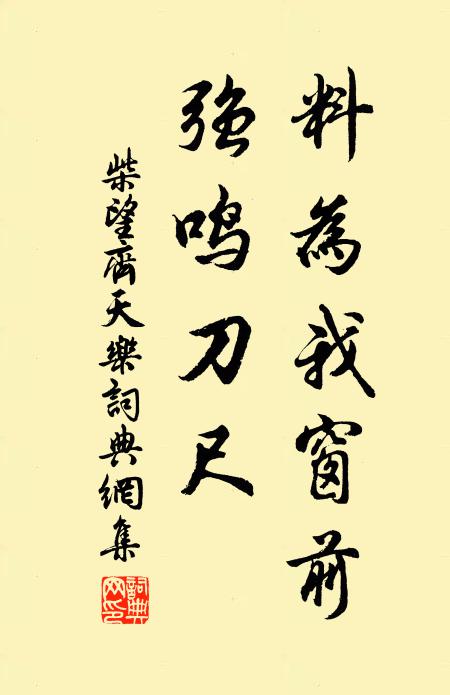 料為我窗前
強鳴刀尺
柴望齊天樂詞典網集
詞典網印